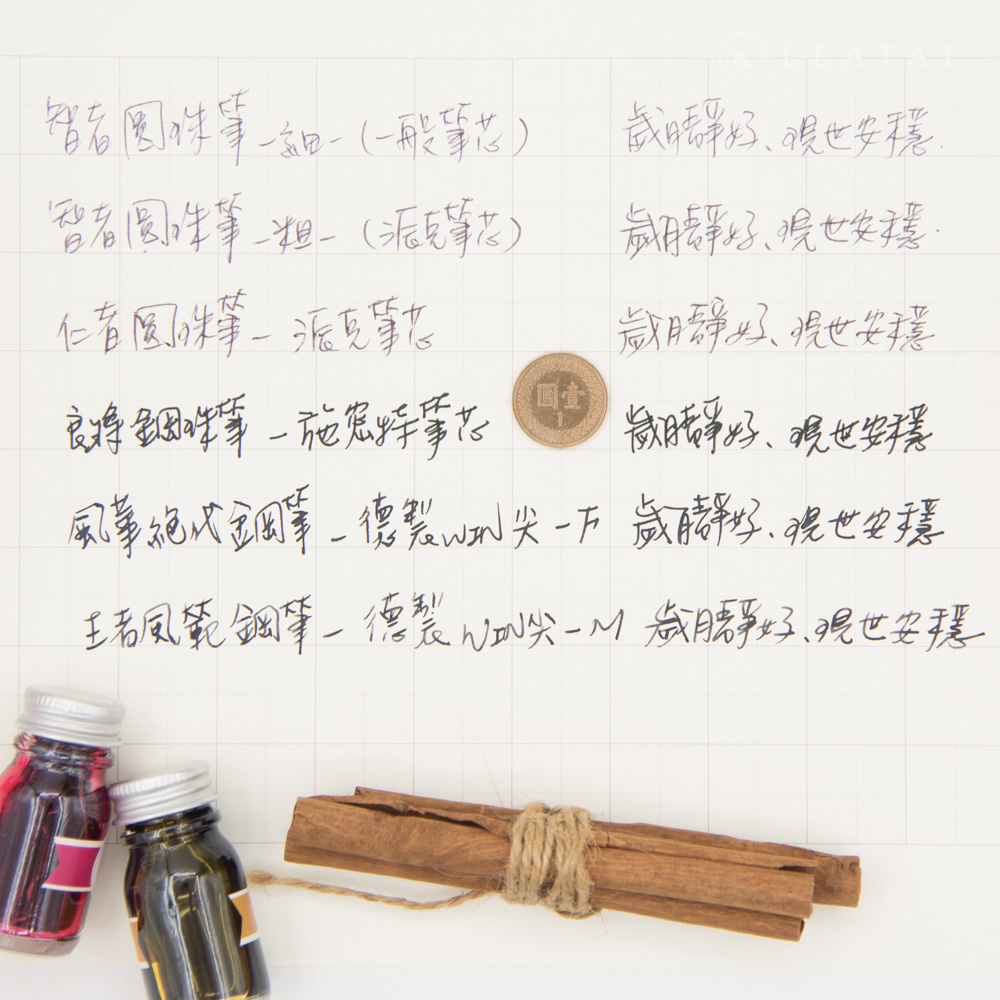 LEATAI
智者圓珠筆-細-(一般筆芯) 歲月靜好、現世安穩.
智者圓珠筆-粗-(派克筆芯) 歲月靜好、現世安穩.
仁者圓珠筆-派克筆芯 歲月靜好、現世安穩
圓壹
1
良將鋼珠筆-施密特筆芯 歲月靜好、現世安穩
風華絕代鋼筆-德製WIN尖-F 歲月靜好、現世安穩
王者風範鋼筆-德製WIN尖-M 歲月靜好、現世安穩